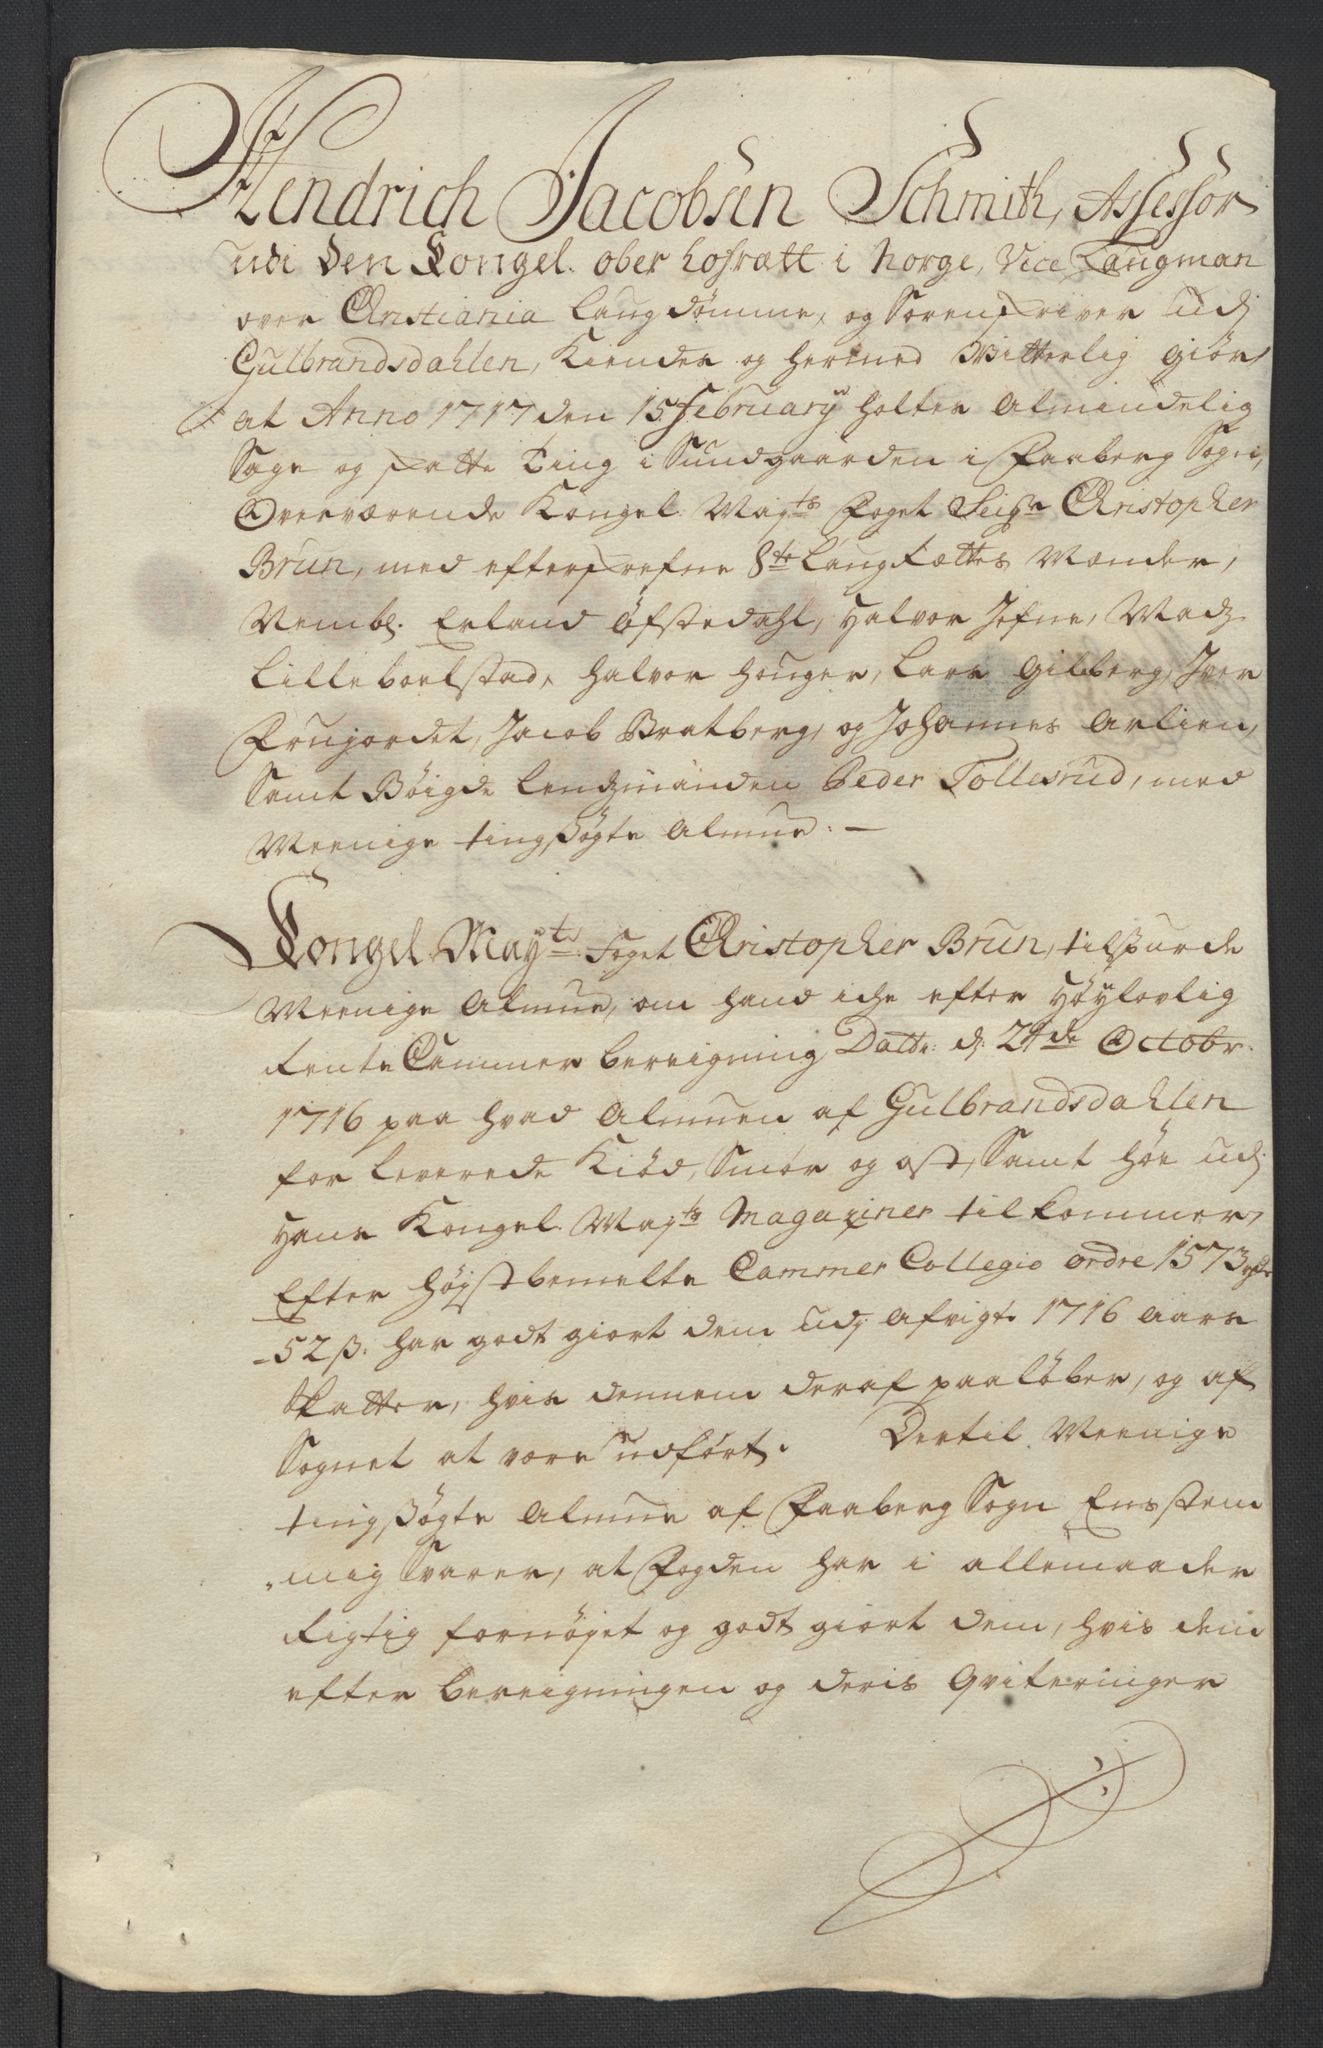 Hendrich Jacobsen Schmith, Assessor
udi den Kongel. ober hofrætt i Norge, Vice Laugman
over Christiania Laugdömme, og Sorenskriver udj
Gulbrandsdahlen, Kiender og hermed Vitterlig giör,
at Anno 1717 den 15 February holtes Almindelig
Sage og skatte Ting i Sundgaarden i Faaberg Sogn,
Overværende Kongel. Mayts Foget Seigr Christopher
Brun, med efterskrefne 8te Laugrættes Mænder,
Nembl. Erland Öfstedahl, Halvor Jefne, Madz
Lilleboelstad, Halvor Houger, Lars Gilberg, Iver
Frugordet, Jacob Bratberg, og Johannes Arlien,
Samt Böigde Lendzmanden Peder Tollesrud, med
Meenige tingsögte Almue. —
Kongel Mayts Foget Christopher Brun, tilspurde
Meenige Almue, om hand iche efter Höylovlig
Rente Cammer beregning Datte. d. 24de Octobr.
1716 paa hvad Almuen af Gulbrandsdahlen
for leverede Kiöd, Smör og ost, Samt höe udj
Hans Kongel. Mayts Magaziner tilkommer,
Efter höystbemelte Cammer Collegio ordre 1573 rdr
52 ß. har godt giort dem udj Afvigte 1716 Aars
Skatter, hvis dennem deraf paalöber, og af
Sognet at være udfört. Dertil Meenige
tingsögte Almue af Faaberg Sogn Eensstem
mig Svarer, at Fogden har i allemaader
Rigtig fornöyet og godt giort dem, hvis dem
efter beregningen og deris Qviteringer